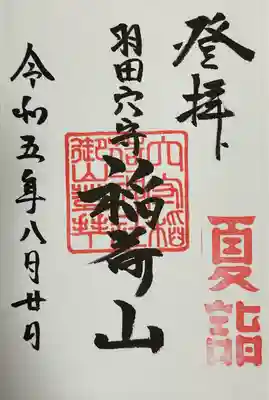 登拝
夏詣
羽田穴守
稲荷山
令和五年八月廿日